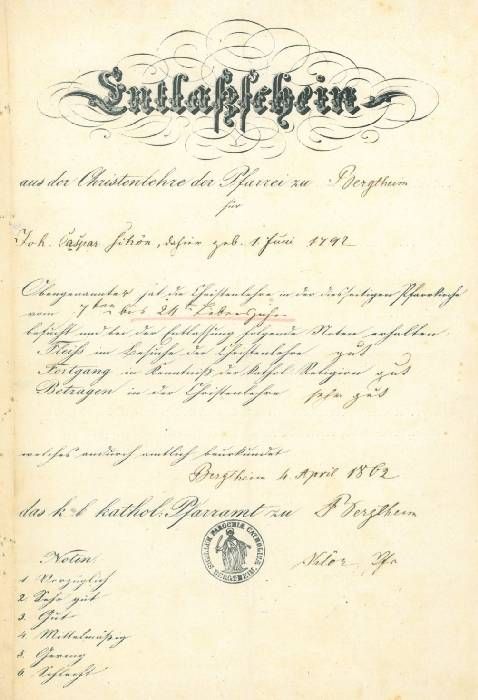 Entlaßschein
aus der Christenlehre der Pfarrei zu Bergtheim
für
Joh. Caspar dahier geb. 1 Juni 1792
Obengenannter hat die Christenlehre in der diesseitigen Pfarrkirche
vom 7ten bis 24 Lebensjahre
besucht und bei der Entlassung folgende Noten erhalten
Fleiß im Besuche der Christenlehre gut
Fortgang in Kenntniß der kathol Religion gut
Betragen in der Christenlehre sehr gut
welches andurch amtlich beurkundet
Bergtheim 4 April 1862
das k. b. kathol. Pfarramt zu Bergtheim
SIGILLUM PAROCHIÆ CATHOLICÆ
BERGTHEIM.
Pfr
Noten
1 Vorzüglich
2. Sehr gut
3. Gut
4 Mittelmäßig
5. Gering
6. Schlecht